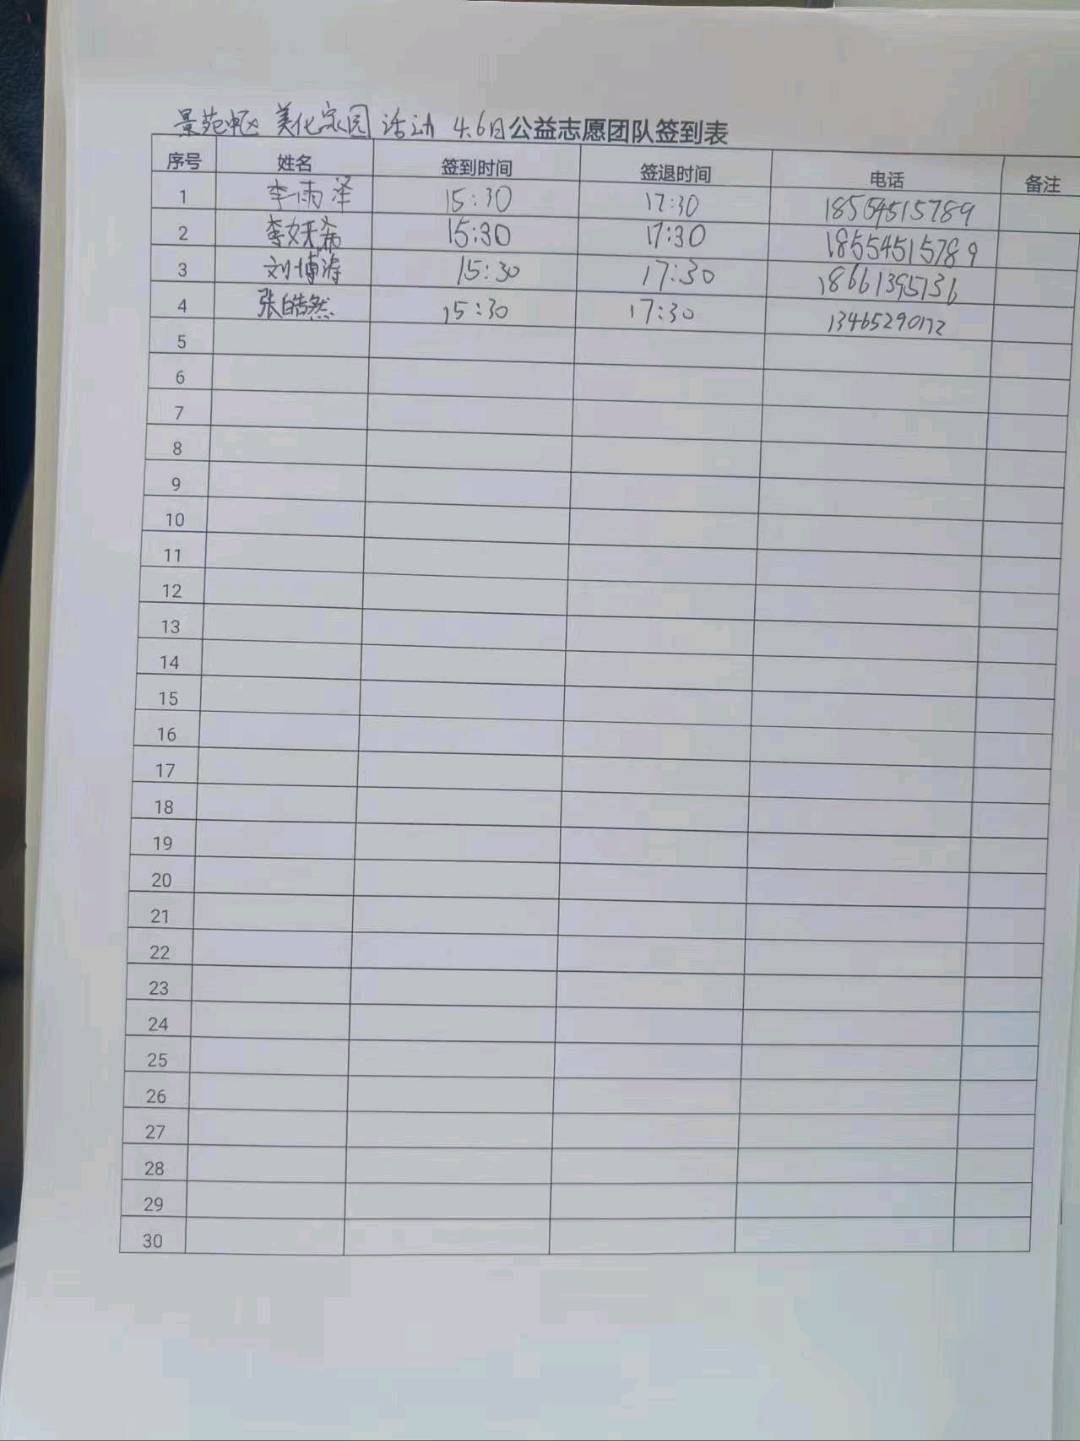 景苑中区 美化家园 活动 4.6日公益志愿团队签到表
序号 姓名 签到时间 签退时间 电话 备注
1 李雨泽 15:30 17:30 18554515789
2 李妖希 15:30 17:30 18554515789
3 刘博涛 15:30 17:30 18661395136
4 张皓然 15:30 17:30 13465290172
5
6
7
8
9
10
11
12
13
14
15
16
17
18
19
20
21
22
23
24
25
26
27
28
29
30